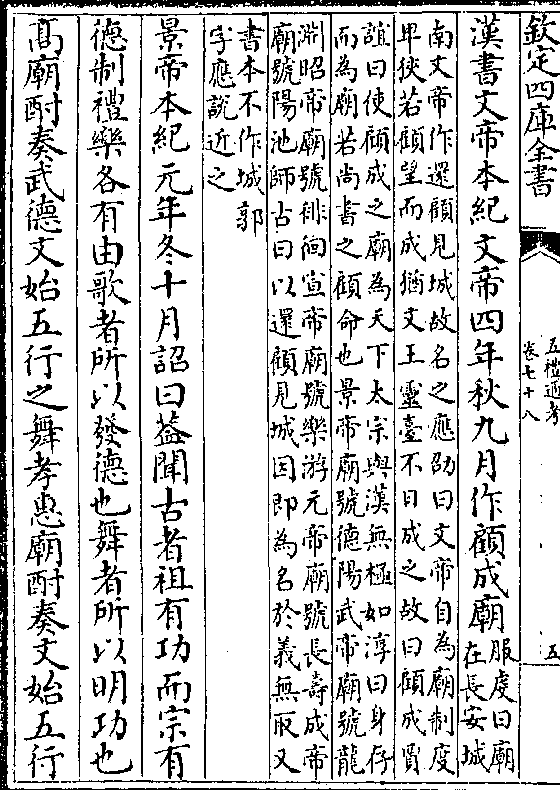 欽定四庫全書
五禮通考
卷七十八
五
漢書文帝本紀文帝四年秋九月作顧成廟
服虔曰廟
在長安城
南文帝作還顧見城故名之應劭曰文帝自為廟制度
卑狹若顧望而成猶文王靈臺不日成之故曰顧成賈
誼曰使顧成之廟為天下太宗與漢無極如淳曰身存
而為廟若尚書之顧命也景帝廟號德陽武帝廟號龍
淵昭帝廟號徘徊宣帝廟號樂游元帝廟號長壽成帝
廟號陽池師古曰以還顧見城因即為名於義無取又
書本不作城郭
字應說近之
景帝本紀元年冬十月詔曰葢聞古者祖有功而宗有
德制禮樂各有由歌者所以發德也舞者所以明功也
高廟酎奏武德文始五行之舞孝惠廟酎奏文始五行